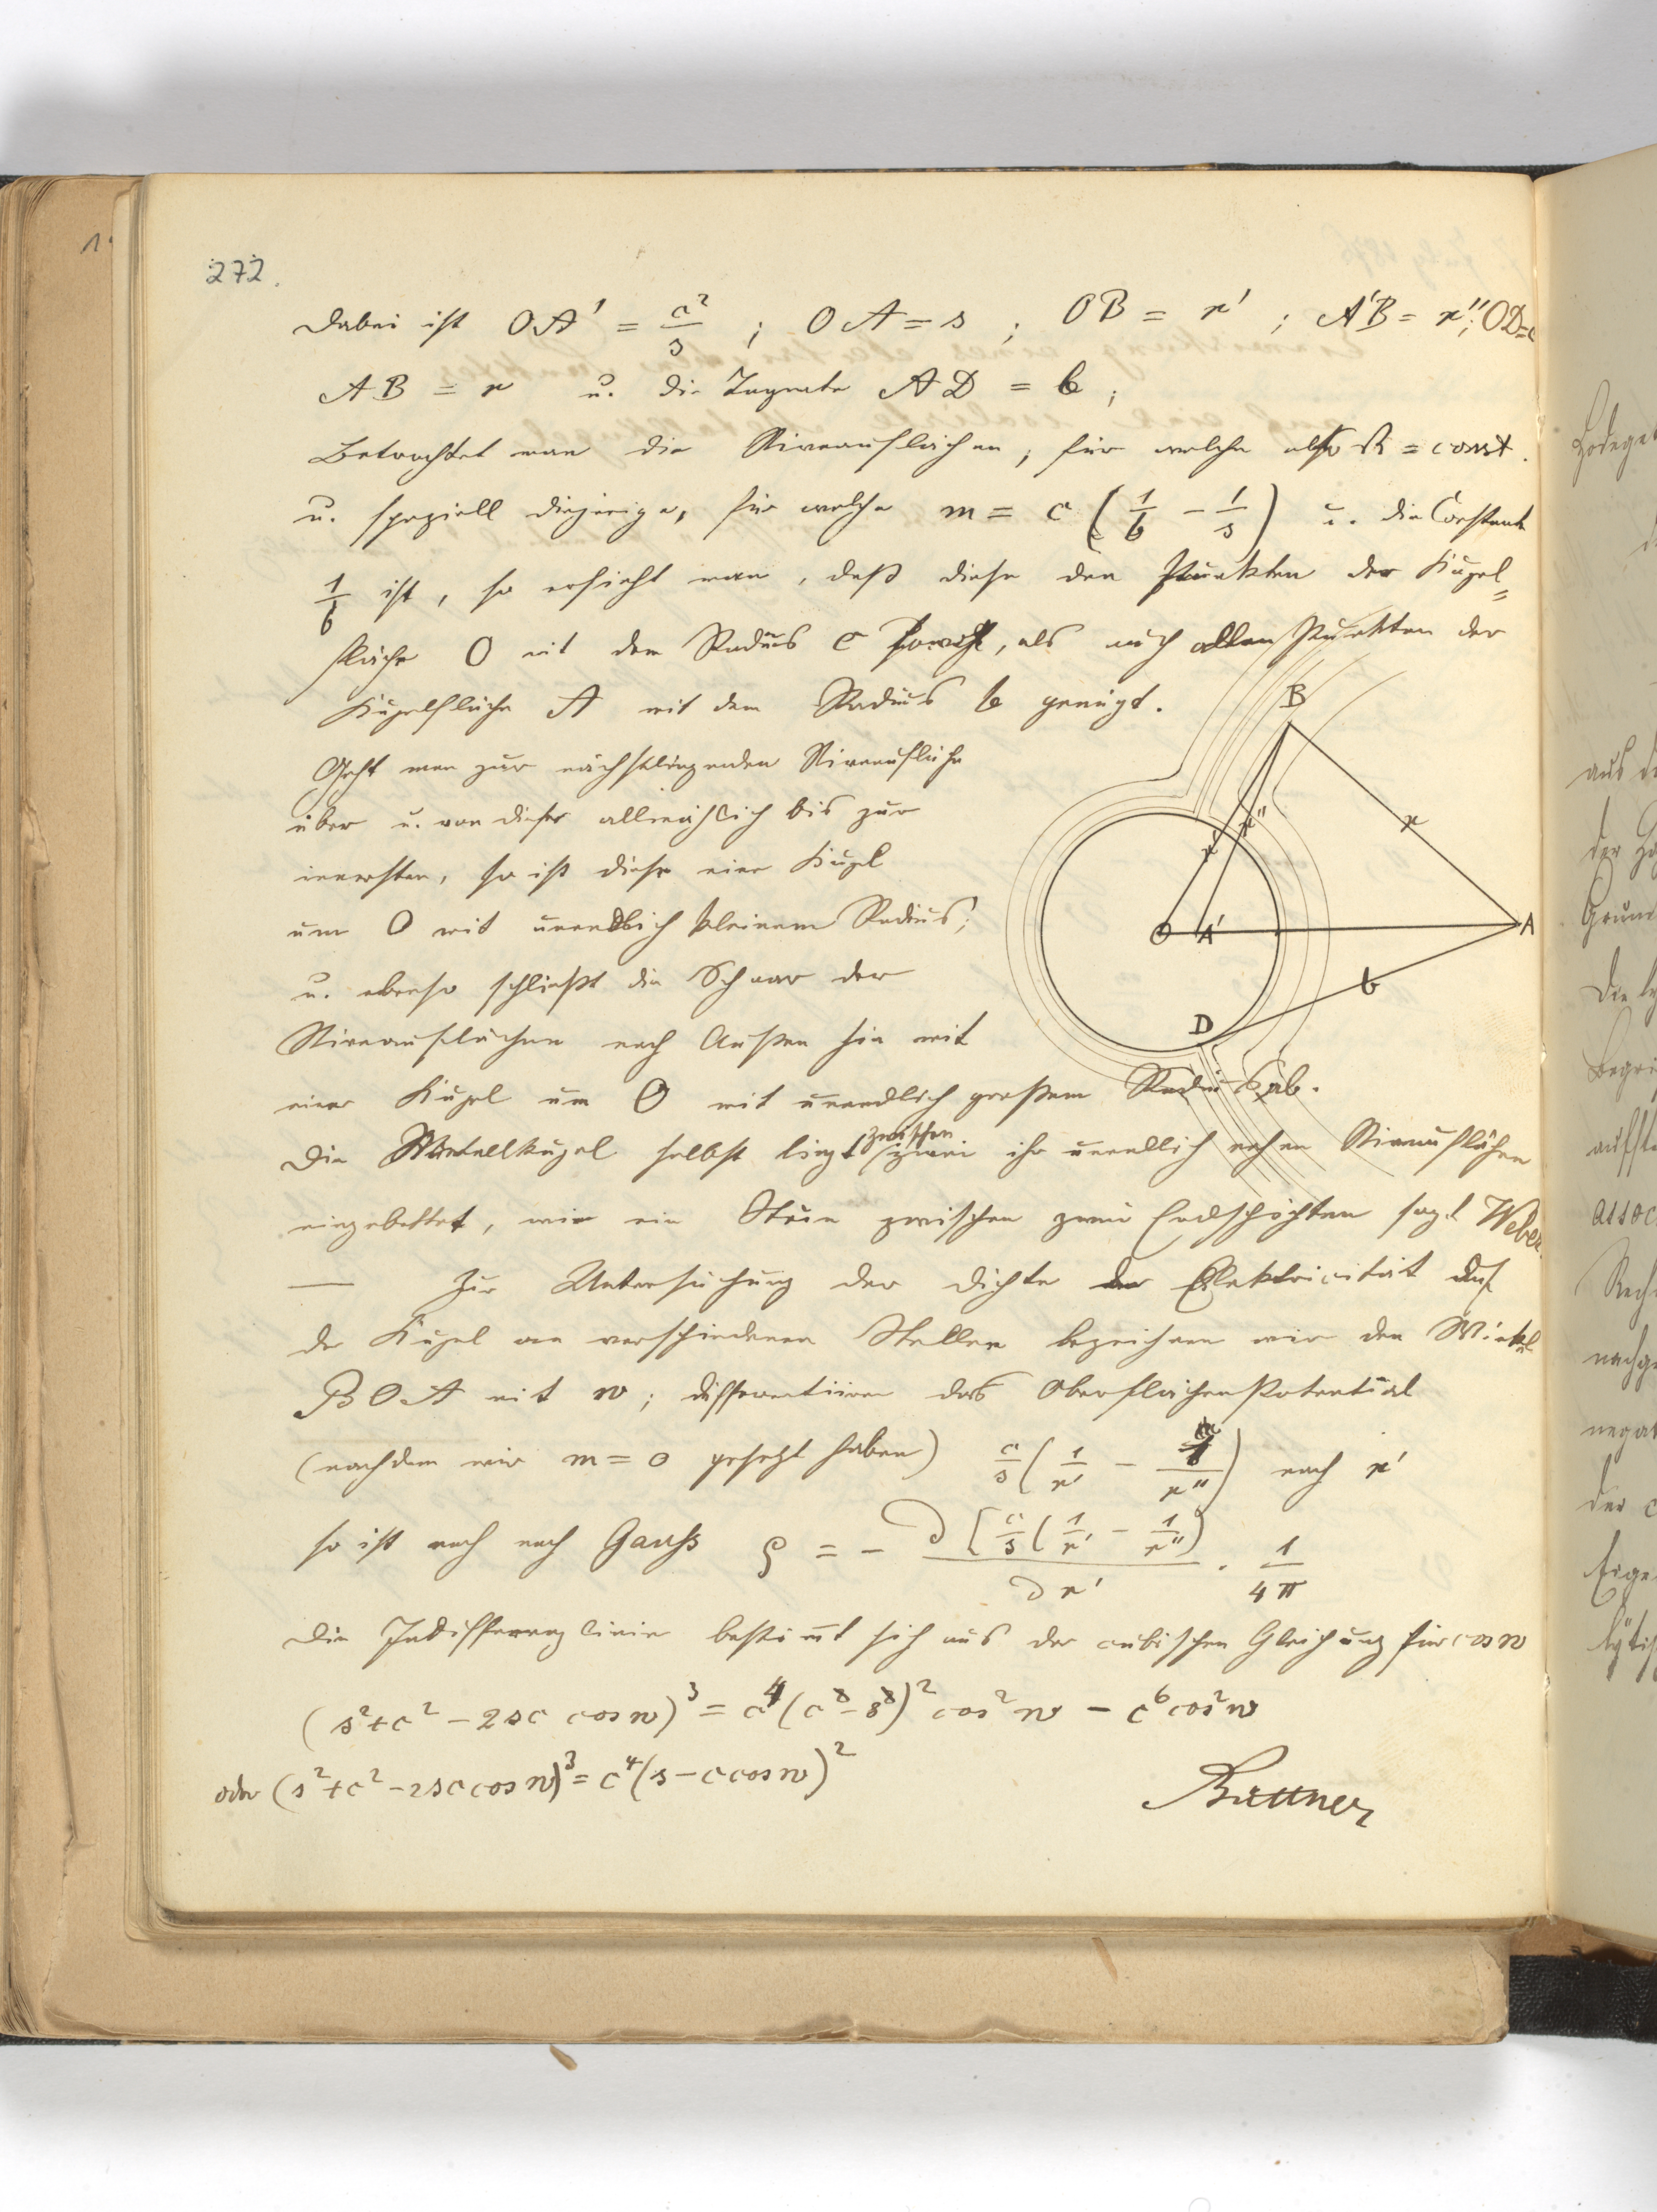 272.
Dabei ist OA' = c²/s ; OA = s ; OB = r' ; A'B = r''; OD=c
AB = r u. die Tangente AD = b ;
Betrachtet man die Niveauflächen, für welche also = const.
u. speziell diejenige, für welche m = c (1/b − 1/s) u. die Constante
1/b ist, so ersieht man, daß diese den Punkten der Kugel=
fläche O mit dem Radius c sowohl, als auch allen Punkten der
Kugelfläche A mit dem Radius b genügt.
Geht man zur nächstliegenden Niveaufläche
über u. von dieser allmählich bis zur
innersten, so ist diese eine Kugel
um O mit unendlich kleinem Radius;
u. ebenso schließt die Schaar der
Niveauflächen nach Außen hin mit
einer Kugel um O mit unendlich großem Radius ab.
Die Metallkugel selbst liegt zwischen zwei ihr unendlich nahen Niveauflächen
eingebettet, wie ein Stein zwischen zwei Erdschichten sagt Weber.
— Zur Untersuchung der Dichte der Elektricität auf
der Kugel an verschiedenen Stellen bezeichnen wir den Winkel
BOA mit w ; differentiiren das Oberflächenpotential
(nachdem wir m = 0 gesetzt haben) c/s (1/r' − 1/r'') nach r'
so ist nach Gauss ρ = − ∂[c/s (1/r' − 1/r'')] / ∂r' · 1/4π
Die Indifferenzlinie bestimmt sich aus der cubischen Gleichung für cos w
(s² + c² − 2sc cos w)³ = c⁴ (c − s)² cos² w − c⁶ cos² w
oder (s² + c² − 2sc cos w)³ = c⁴ (s − c cos w)²
Büttner
B
r
r'
r''
O
A'
A
b
D